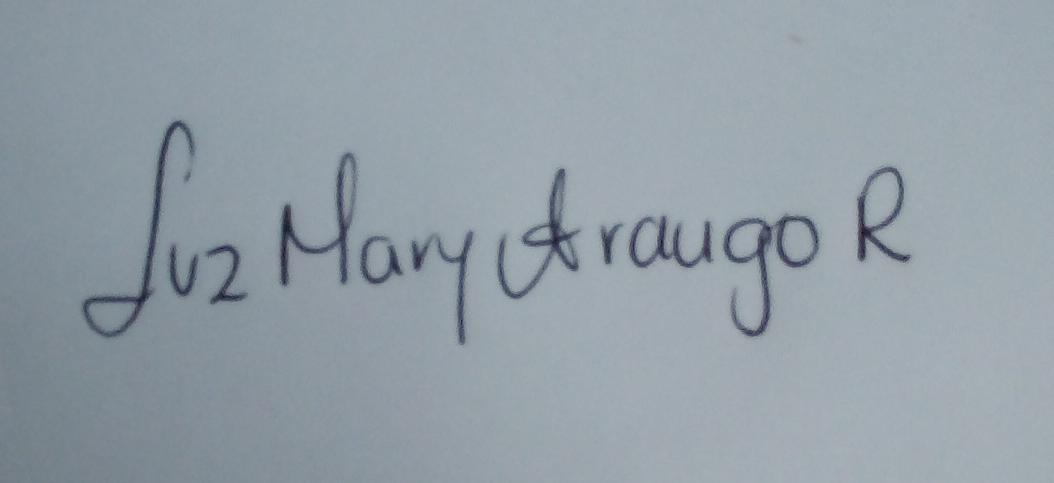 Luz Mary Araugo R